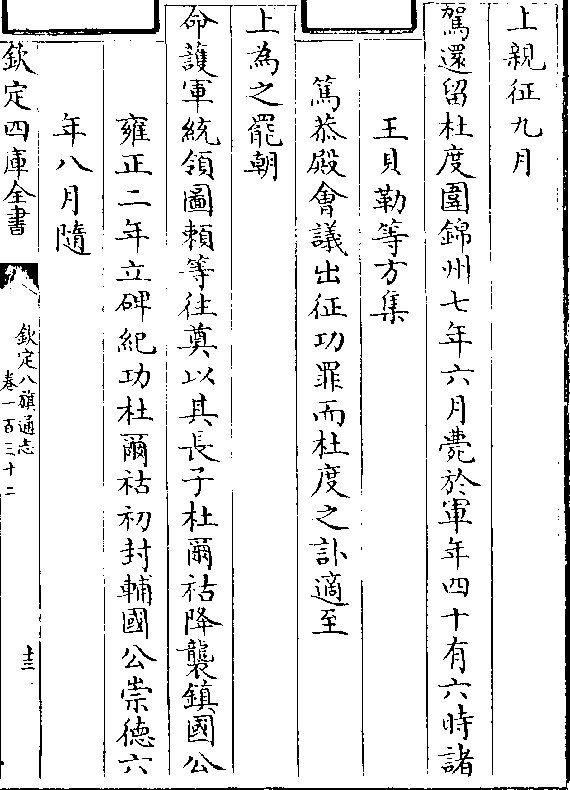 上親征九月
駕還留杜度圍錦州七年六月薨於軍年四十有六時諸
王貝勒等方集
篤恭殿會議出征功罪而杜度之訃適至
上為之罷朝
命護軍統領圖賴等往奠以其長子杜爾祜降襲鎮國公
雍正二年立碑紀功杜爾祜初封輔國公崇德六
年八月隨
欽定四庫全書
欽定八旗通志
卷一百三十二